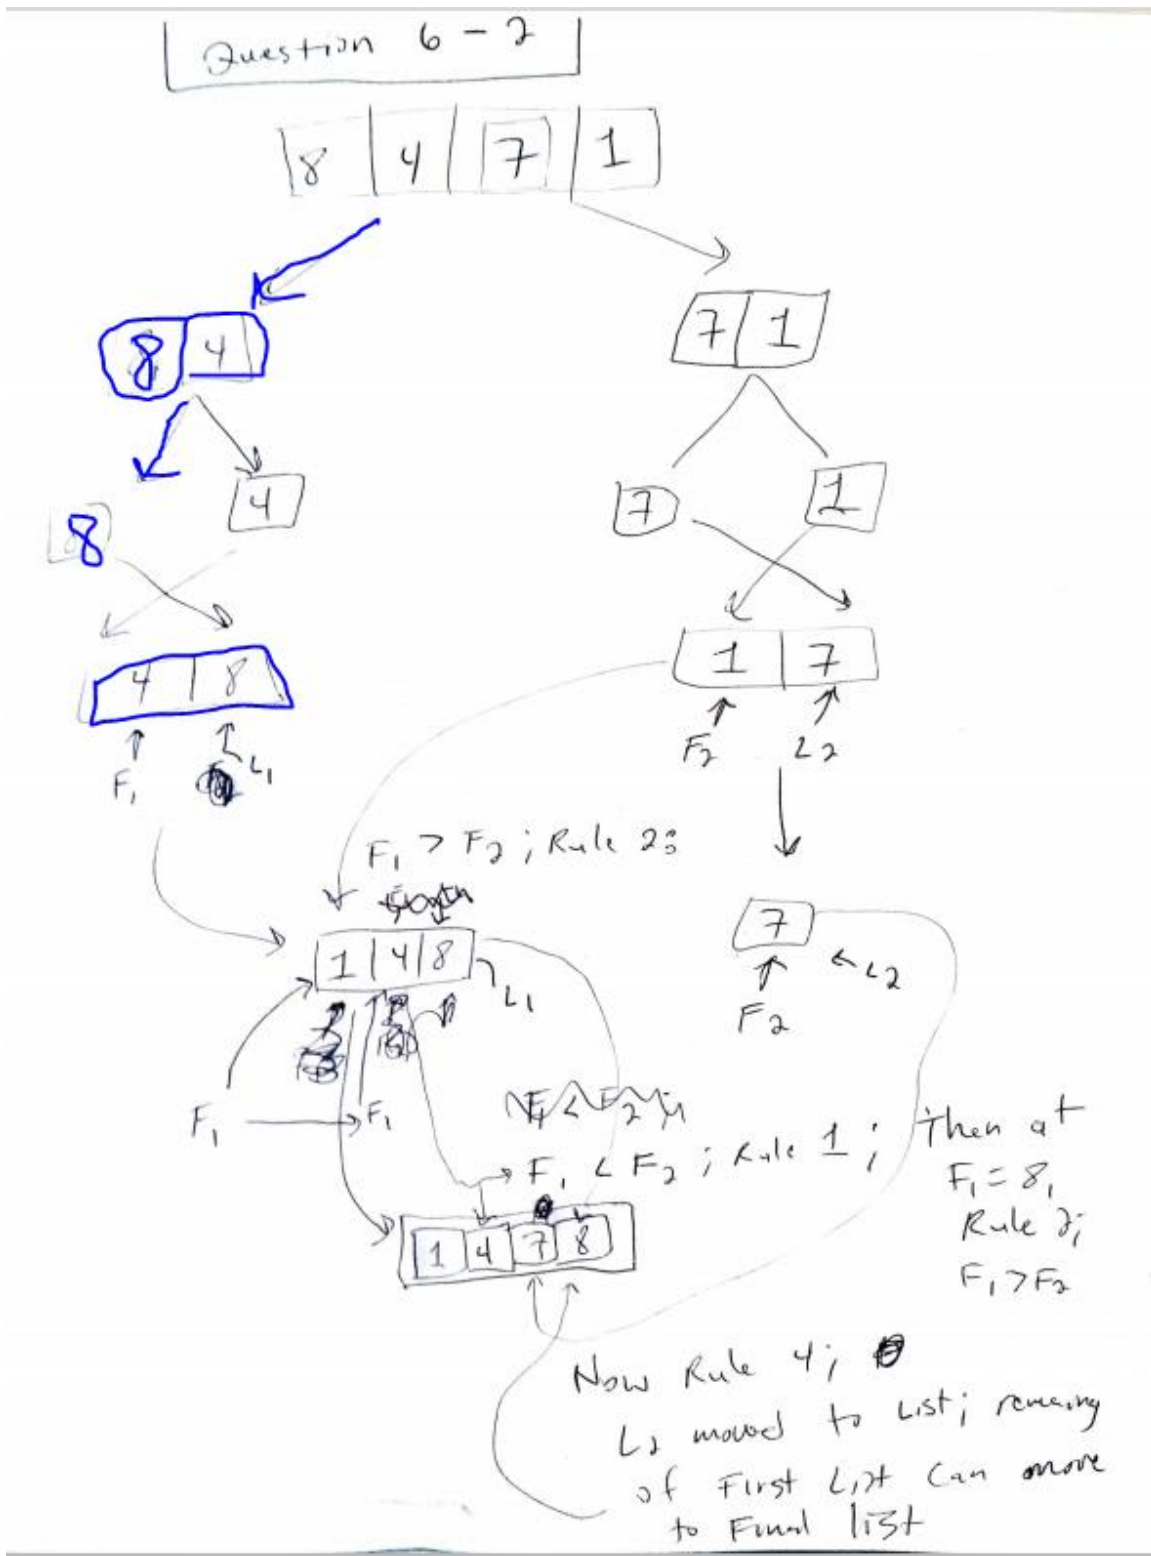 Question 6-2
8 4 7 1
8 4
7 1
8
4
7
1
4 8
1 7
F₁ L₁
F₂ L₂
F₁ > F₂ ; Rule 2:
1 4 8
L₁
7
L₂
F₂
F₁ F₁
F₁ < F₂ ; Rule 1 ;
Then at
F₁ = 8,
Rule 2;
F₁ > F₂
1 4 7 8
Now Rule 4;
L₂ moved to List;
of First List can move
to Final list